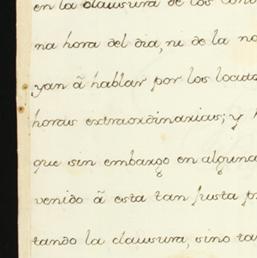 en la clausura de los con
na hora del dia, ni de la no
yan â hablar por los locu
horas extraordinarias; y
que sin embargo en alguna
venido â esta tan justa p
tando la clausura, sino ta